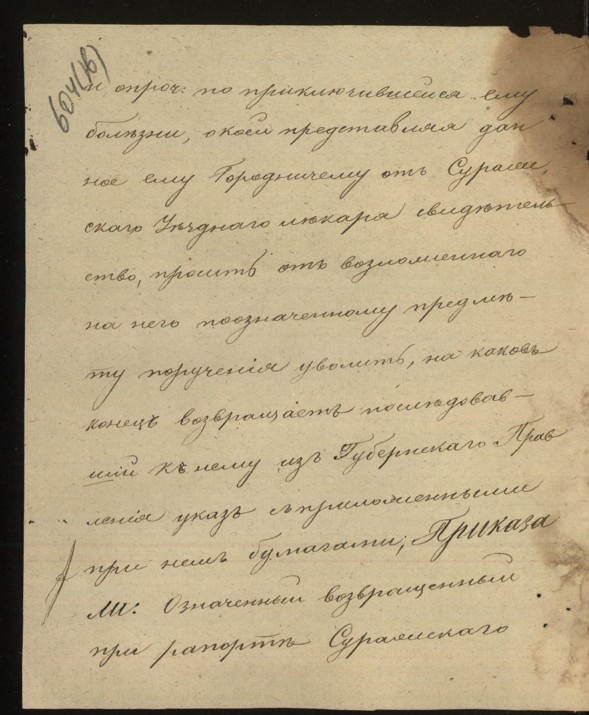 604(б)
и опроч: по приключившейся ему
болѣзни, о коей представляя дан
ное ему Городничему отъ Сураж
скаго Уѣзднаго лѣкаря свидѣтель-
ство, проситъ отъ возложеннаго
на него поозначенному предмѣ-
ту порученія уволить, на каковъ
конецъ возвращаетъ послѣдовав-
шій къ нему изъ Губернскаго Прав
ленія указъ съ приложенными
при немъ бумагами; Приказа
ли: Означенный возвращенный
при рапортѣ Суражскаго